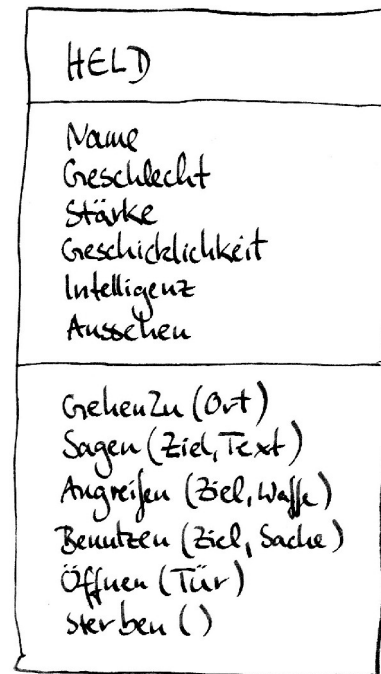 HELD
Name
Geschlecht
Stärke
Geschicklichkeit
Intelligenz
Aussehen
GehenZu (Ort)
Sagen (Ziel, Text)
Angreifen (Ziel, Waffe)
Benutzen (Ziel, Sache)
Öffnen (Tür)
Sterben ()